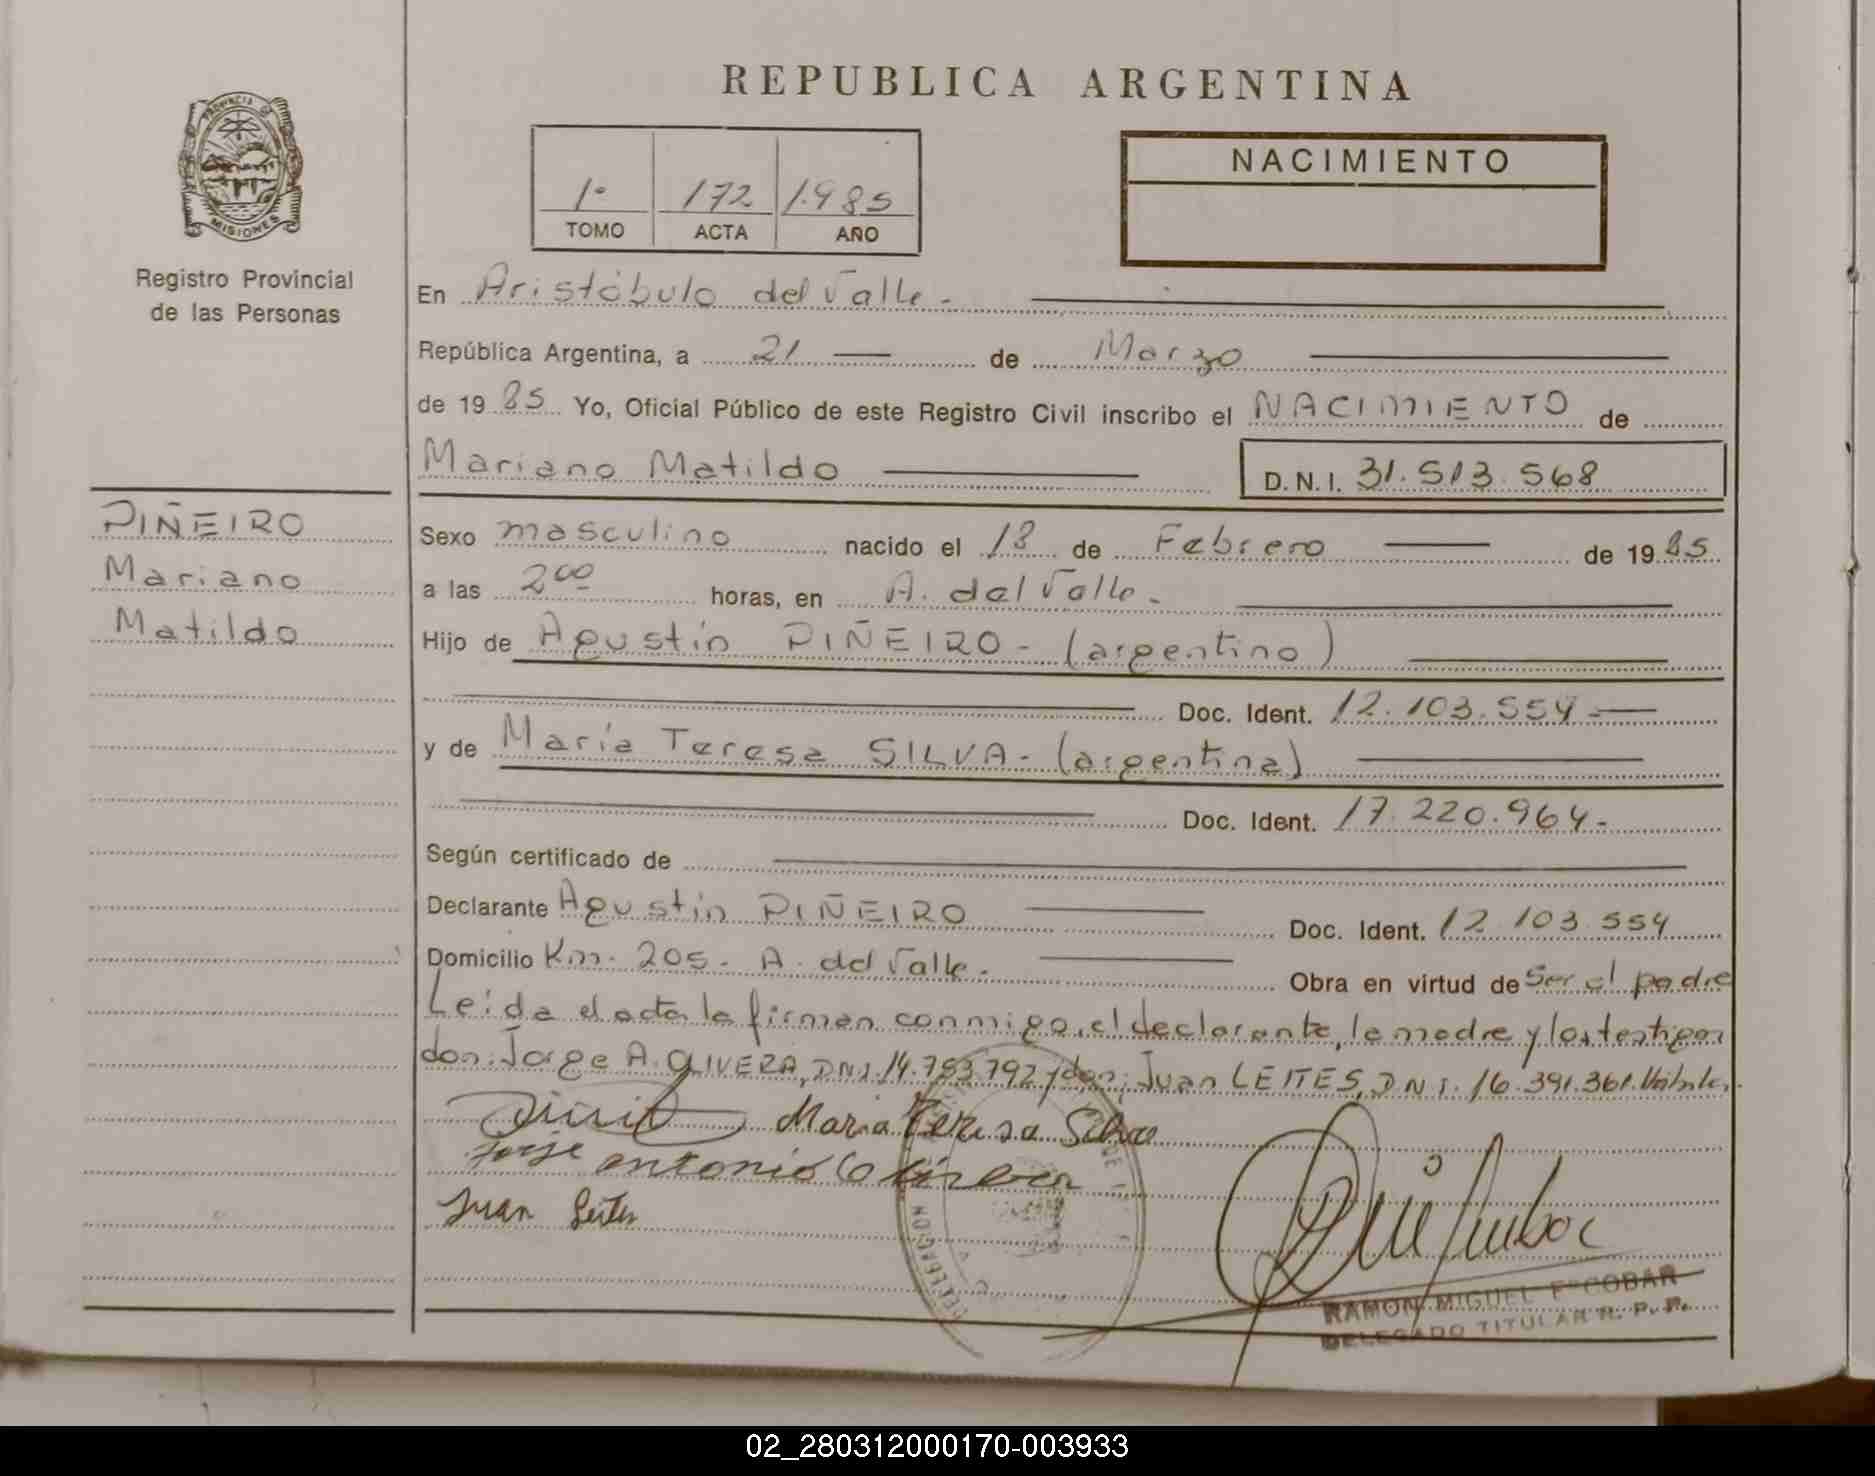 REPUBLICA ARGENTINA
PROVINCIA DE
MISIONES
Registro Provincial
de las Personas
1º 172 1.985
TOMO ACTA AÑO
NACIMIENTO
En Aristóbulo del Valle.-
República Argentina, a 21 de Marzo
de 1985 Yo, Oficial Público de este Registro Civil inscribo el NACIMIENTO de
Mariano Matildo D.N.I. 31.513.568
PIÑEIRO
Mariano
Matildo
Sexo masculino nacido el 18 de Febrero de 1985
a las 2 00 horas, en A. del Valle.-
Hijo de Agustín PIÑEIRO - (argentino)
Doc. Ident. 12.103.554.-
y de María Teresa SILVA - (argentina)
Doc. Ident. 17.220.964.-
Según certificado de
Declarante Agustín PIÑEIRO Doc. Ident. 12.103.554
Domicilio Km. 205. A. del Valle.- Obra en virtud de Ser el padre
Leída el acta la firman conmigo, el declarante, la madre y los testigos
don: Jorge A. OLIVERA, DNI. 14.753.792 y don: Juan LEITES, DNI. 16.391.361.
Maria Teresa Silva
Jorge antonio Olivera
Juan Leites
DELEGACION
RAMON MIGUEL ESCOBAR
DELEGADO TITULAR R. P. P.
02_280312000170-003933